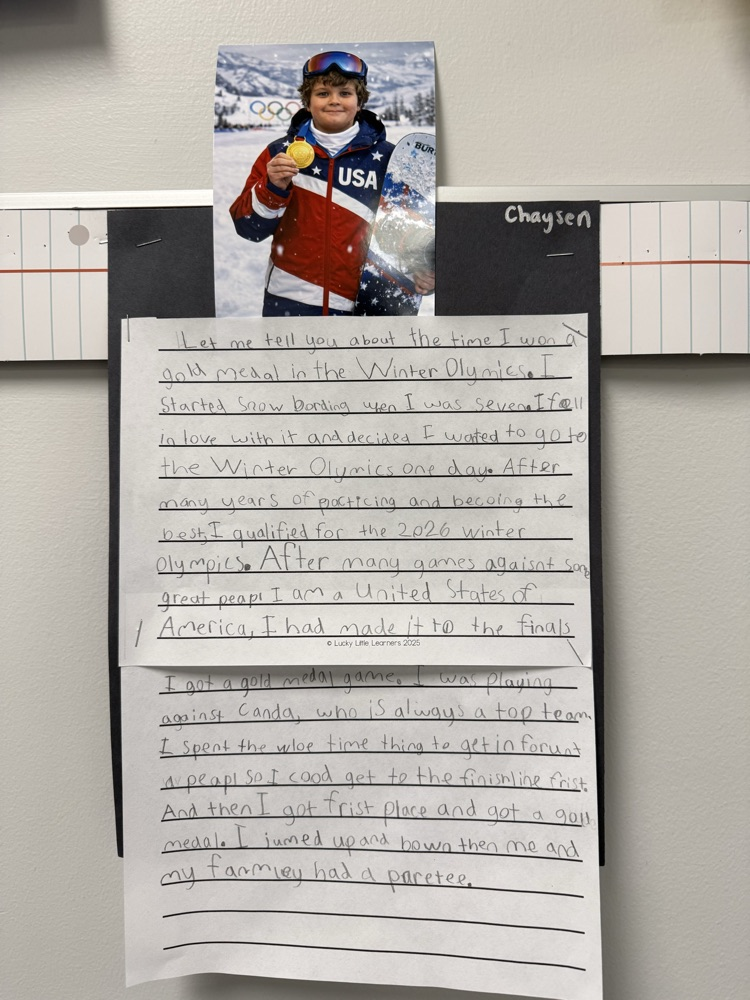 BUR
USA
Chaysen
Let me tell you about the time I won a
gold medal in the Winter Olymics. I
started Snow bording wen I was seven. I fell
in love with it and decided I wated to go to
the Winter Olymics one day. After
many years of pacticing and becoing the
best, I qualified for the 2026 winter
Olympics. After many games agaisnt som
great peapl I am a United States of
America, I had made it to the finals
© Lucky Little Learners 2025
I got a gold medal game. I was playing
against Canda, who is always a top team.
I spent the wloe time thing to get in forunt
a peapl so I cood get to the finishline frist.
And then I got frist place and got a gold
medal. I jumed up and bown then me and
my fanmley had a paretee.